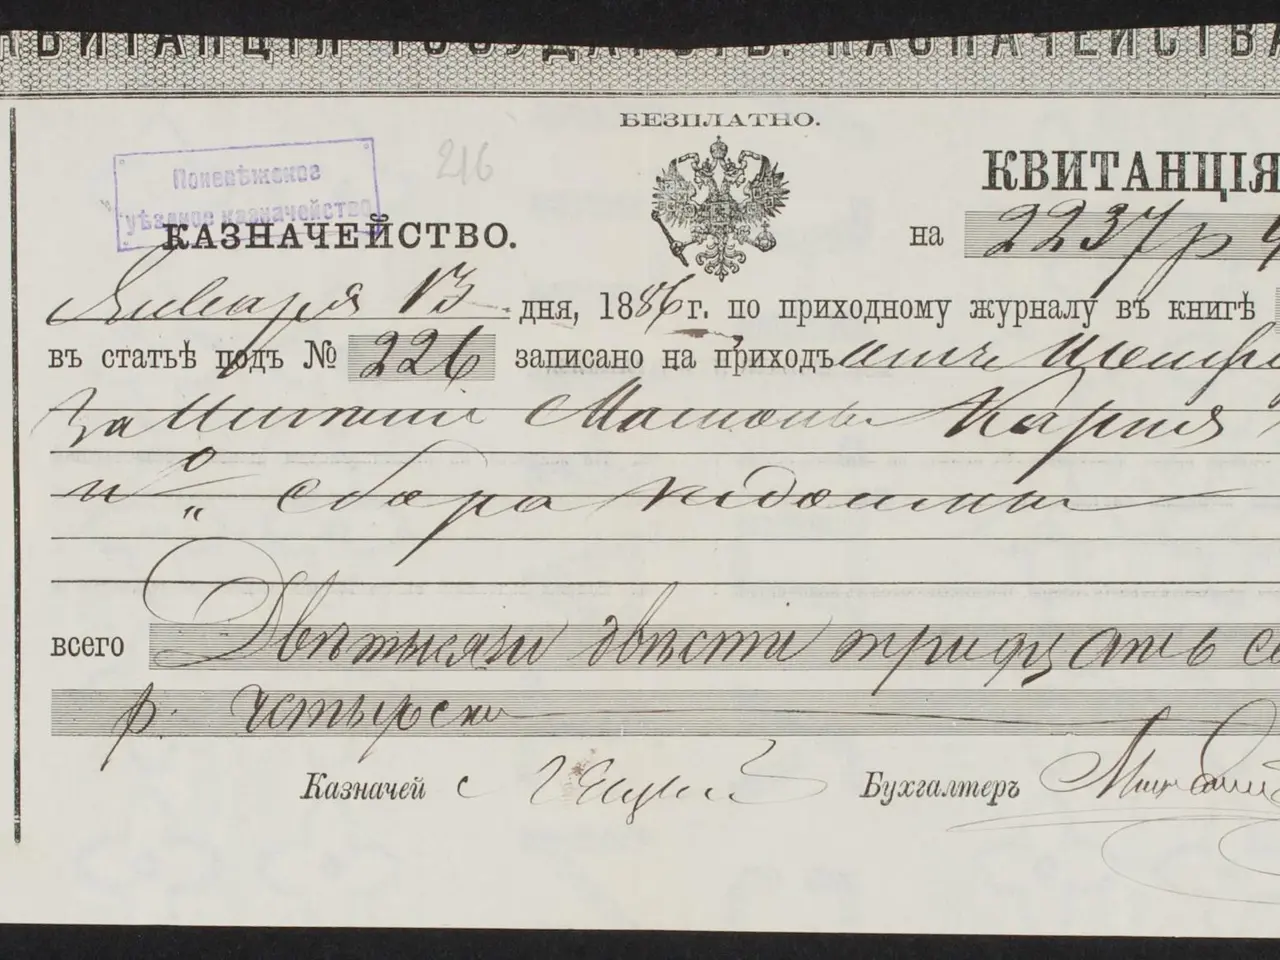 КВИТАНЦІЯ ГОСУДАРСТВ. КАЗНАЧЕЙСТВА
БЕЗПЛАТНО.
Поневѣжское
уѣздное казначейство
216
КВИТАНЦІЯ
КАЗНАЧЕЙСТВО.
на 2237 р 4
Января 13 дня, 1886 г. по приходному журналу въ книгѣ
въ статьѣ подъ № 226 записано на приходъ
за имѣніе
и % сбора недоимки
всего Двѣ тысячи двѣсти тридцать се
р. четыре к
Казначей
Бухгалтеръ